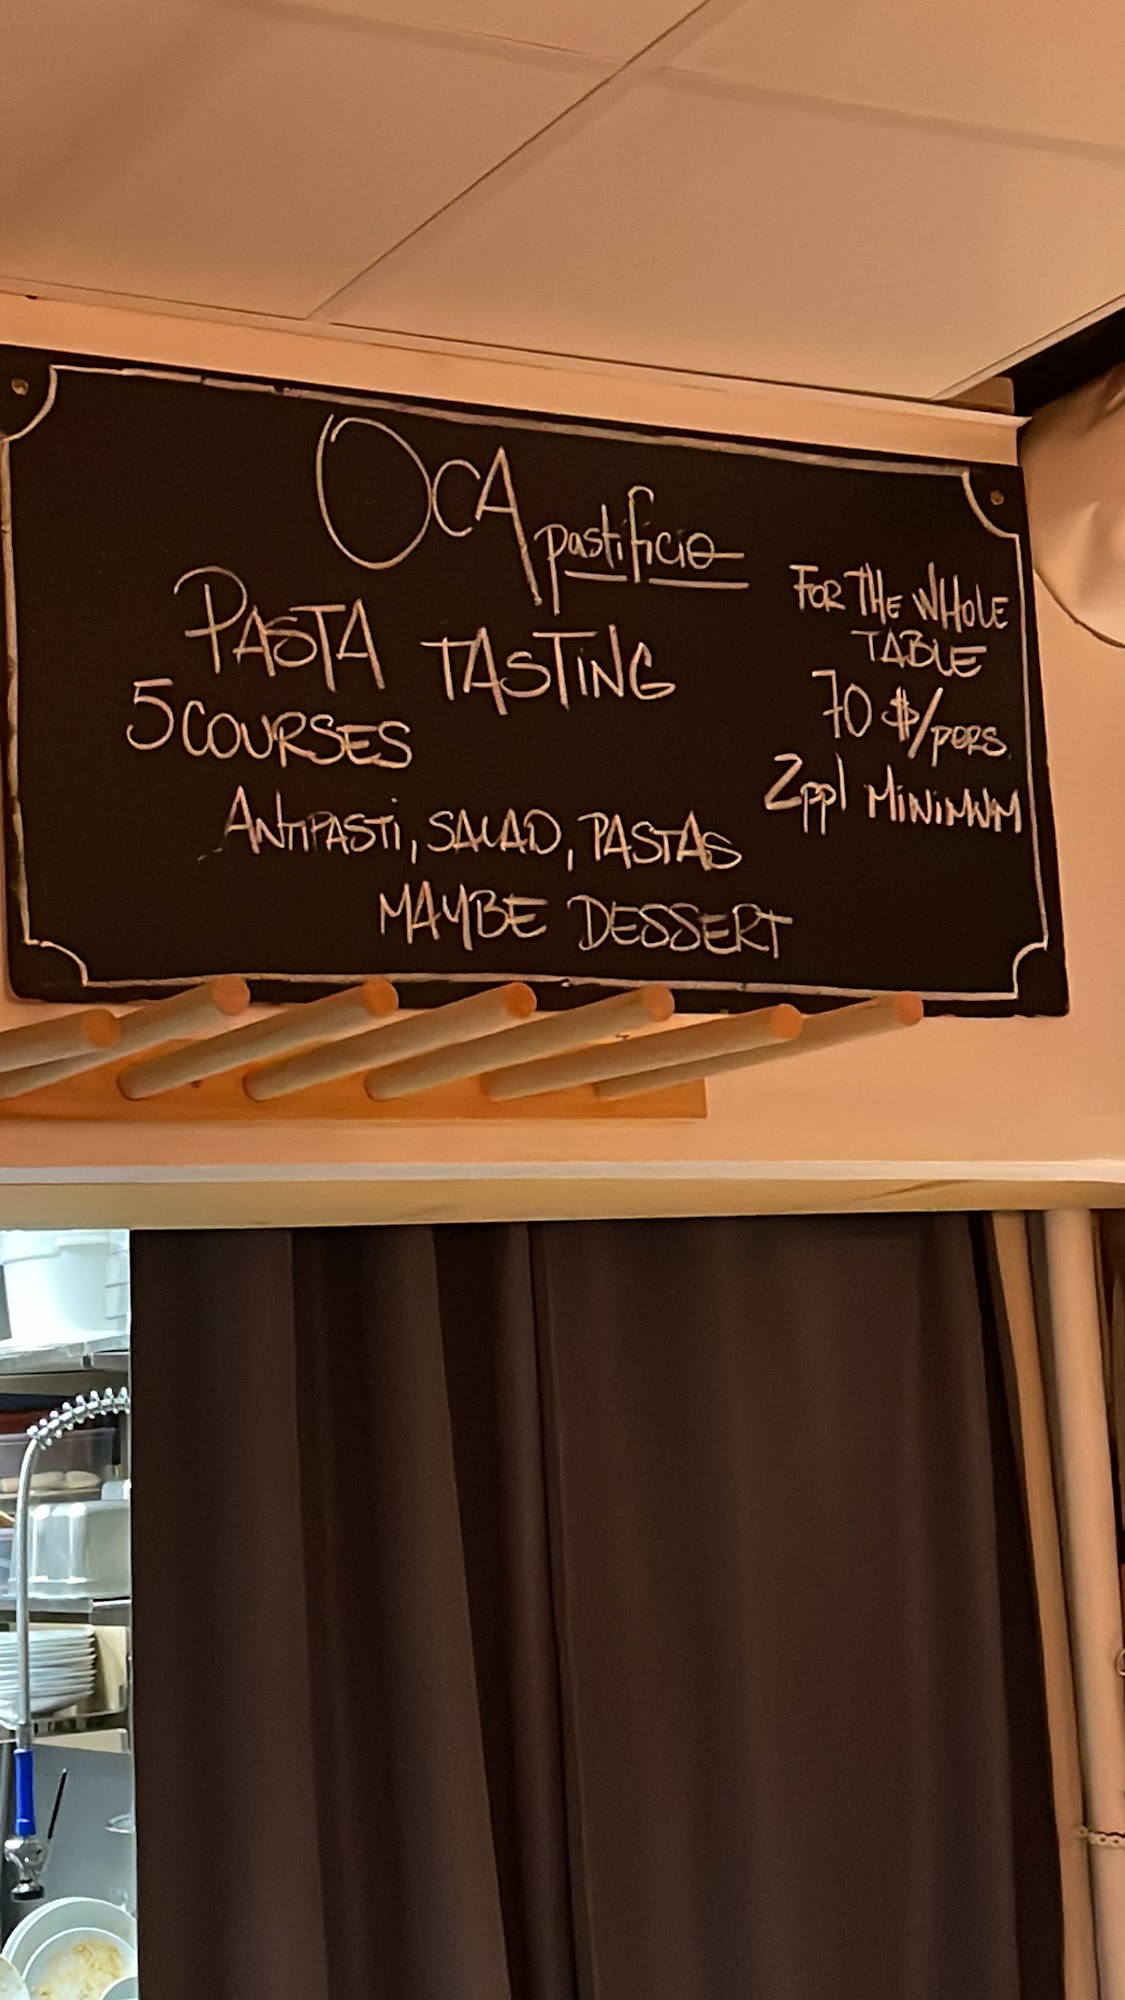 OCA pastificio
PASTA TASTING
5 COURSES
ANTIPASTI, SALAD, PASTAS
MAYBE DESSERT
FOR THE WHOLE
TABLE
70 $/pers.
2ppl MINIMUM